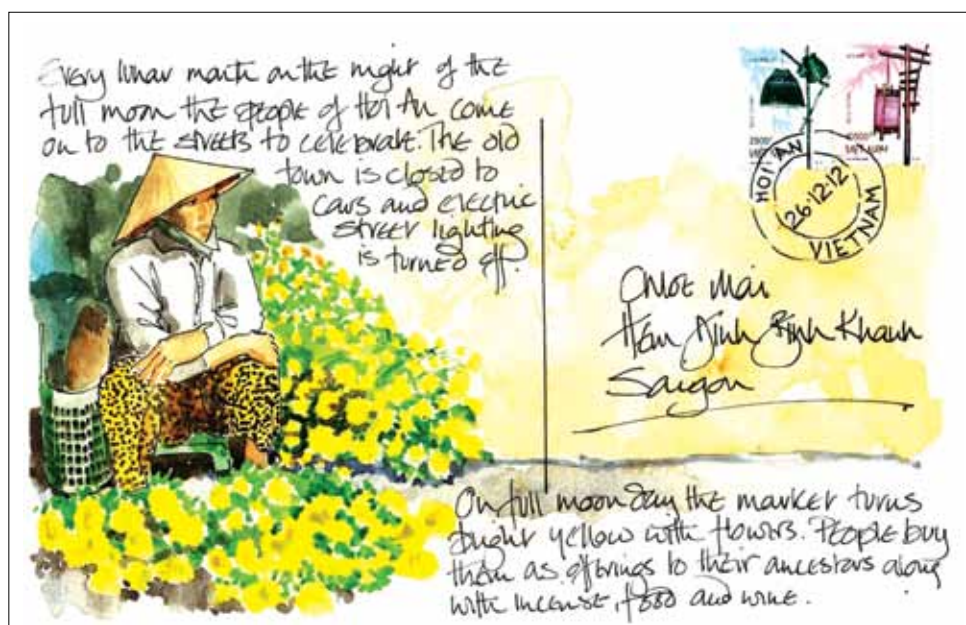 Every lunar month on the night of the
full moon the people of Hoi An come
on to the streets to celebrate. The old
town is closed to
cars and electric
street lighting
is turned off.
HOI AN
26·12·12
VIETNAM
Mai
Binh Khanh
Saigon
On full moon day the market turns
bright yellow with flowers. People buy
them as offerings to their ancestors along
with incense, food and wine.